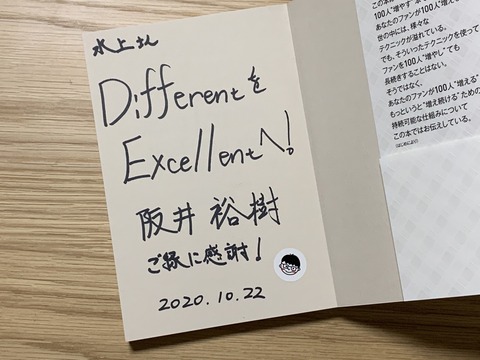 水上さん
Differentを
Excellentへ!
阪井 裕樹
ご縁に感謝!
2020.10.22
この本は
100人"増やす"
あなたのファンが100人"増え
世の中には、様々な
テクニックが溢れている。
でも、そういったテクニックを使って
ファンを100人"増やし"ても
長続きすることはない。
そうではなく、
あなたのファンが100人"増える"
もっというと"増え続ける"ための
持続可能な仕組みについて
この本ではお伝えしている。
(はじめにより)